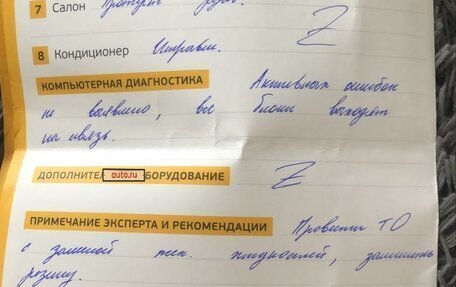 7 Салон
8 Кондиционер Исправен.
КОМПЬЮТЕРНАЯ ДИАГНОСТИКА Активных ошибок
не выявлено, все блоки выходят
на связь.
ДОПОЛНИТЕЛ auto.ru БОРУДОВАНИЕ Z
ПРИМЕЧАНИЕ ЭКСПЕРТА И РЕКОМЕНДАЦИИ Провести ТО
с заменой тех. жидкостей, заменить
резину.